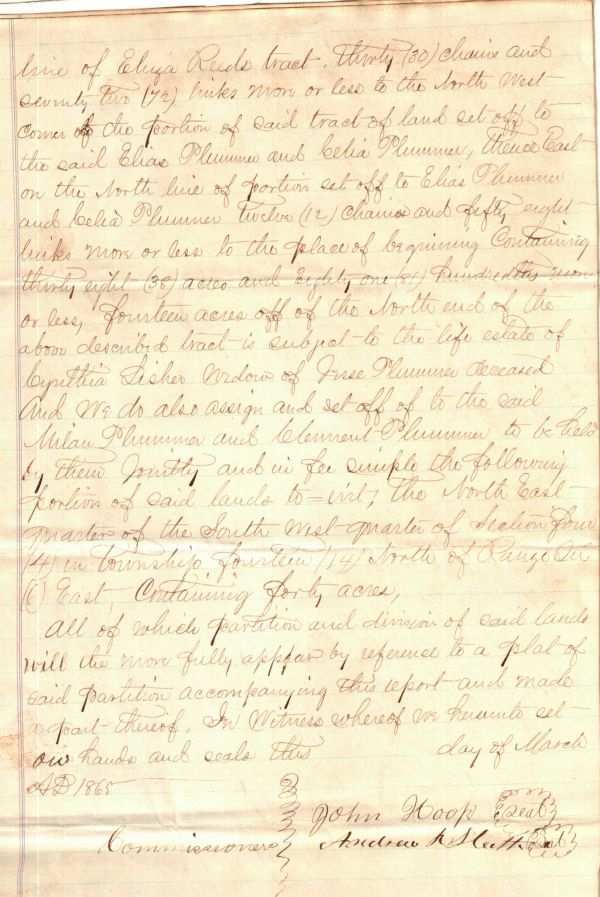 line of Eliza Reeds tract, thirty (30) chains and
seventy two (72) links more or less to the North West
corner of the portion of said tract of land set off to
the said Elias Plummer and Celia Plummer, thence East
on the North line of portion set off to Elias Plummer
and Celia Plummer twelve (12) chains and fifty eight
links more or less to the place of beginning Containing
thirty eight (38) acres and Eighty one (81) hundredths more
or less, fourteen acres off of the North end of the
above described tract is subject to the life estate of
Cynthia Fisher Widow of Jesse Plummer deceased
And We do also assign and set off of to the said
Milan Plummer and Clement Plummer to be held
by them Jointly and in fee simple the following
portion of said lands to=wit; the North East
quarter of the South West quarter of Section four
(4) in township fourteen (14) North of Range Six
(6) East, Containing forty acres,
All of which partition and division of said lands
will the more fully appear by reference to a plat of
said partition accompanying this report and made
a part thereof, In Witness whereof we hereunto set
our hands and seals this day of March
AD 1865
John Hoop Seal
Commissioners Andrew K Seal